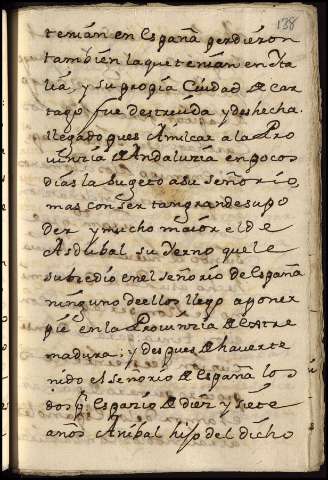 138
tenian en España perdieron
tambien la que tenian en Ita
lia, y su propia Ciudad de Car
tago fue destruida y deshecha.
llegado pues Amilcar a la Pro
vinzia de Andaluzia en pocos
dias la sugeto a su señorio,
mas con ser tan grande su po
der y mucho maior el de
Asdubal su Yerno que le
subcedio en el señorio de España
ninguno de ellos llego a poner
pie en la Provinzia de Extre
madura; y despues de haverte
nido el señorio de España los
dos pr espazio de diez y siete
años Anibal hijo del dicho